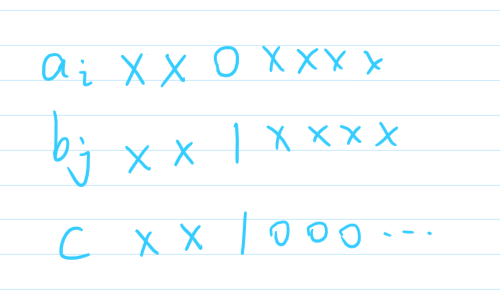 ai x x 0 x x x x
bj x x 1 x x x x
c x x 1 0 0 0 ...